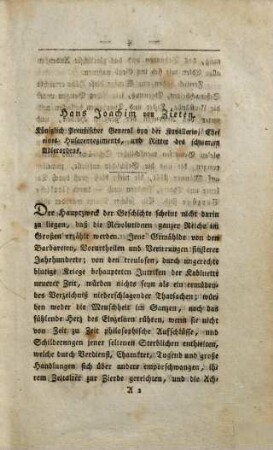 Hans Joachim von Zieten,
Königlich Preussischer General von der Kavallerie, Chef
eines Husarenregiments, und Ritter des schwarzen
Adlerordens.
Der Hauptzweck der Geschichte scheint nicht darin
zu liegen, daß die Revolutionen ganzer Reiche im
Großen erzählt werden. Jene Gemählde von den
Barbareien, Vorurtheilen und Verirrungen finsterer
Jahrhunderte; von den treulosen, durch ungerecht
blutige Kriege behaupteten Intriken der Kabinette
neuerer Zeit, würden nichts seyn als ein ermüden-
des Verzeichniß niederschlagender Thatsachen; wür-
den weder die Menschheit im Ganzen, noch das
fühlende Herz des Einzelnen rühren, wenn sie nicht
von Zeit zu Zeit philosophische Aufschlüsse, und
Schilderungen jener seltenen Sterblichen enthielten,
welche durch Verdienst, Charakter, Tugend und große
Handlungen sich über andere emporschwangen, ih-
rem Zeitalter zur Zierde gereichten, und die Ach-
A 2